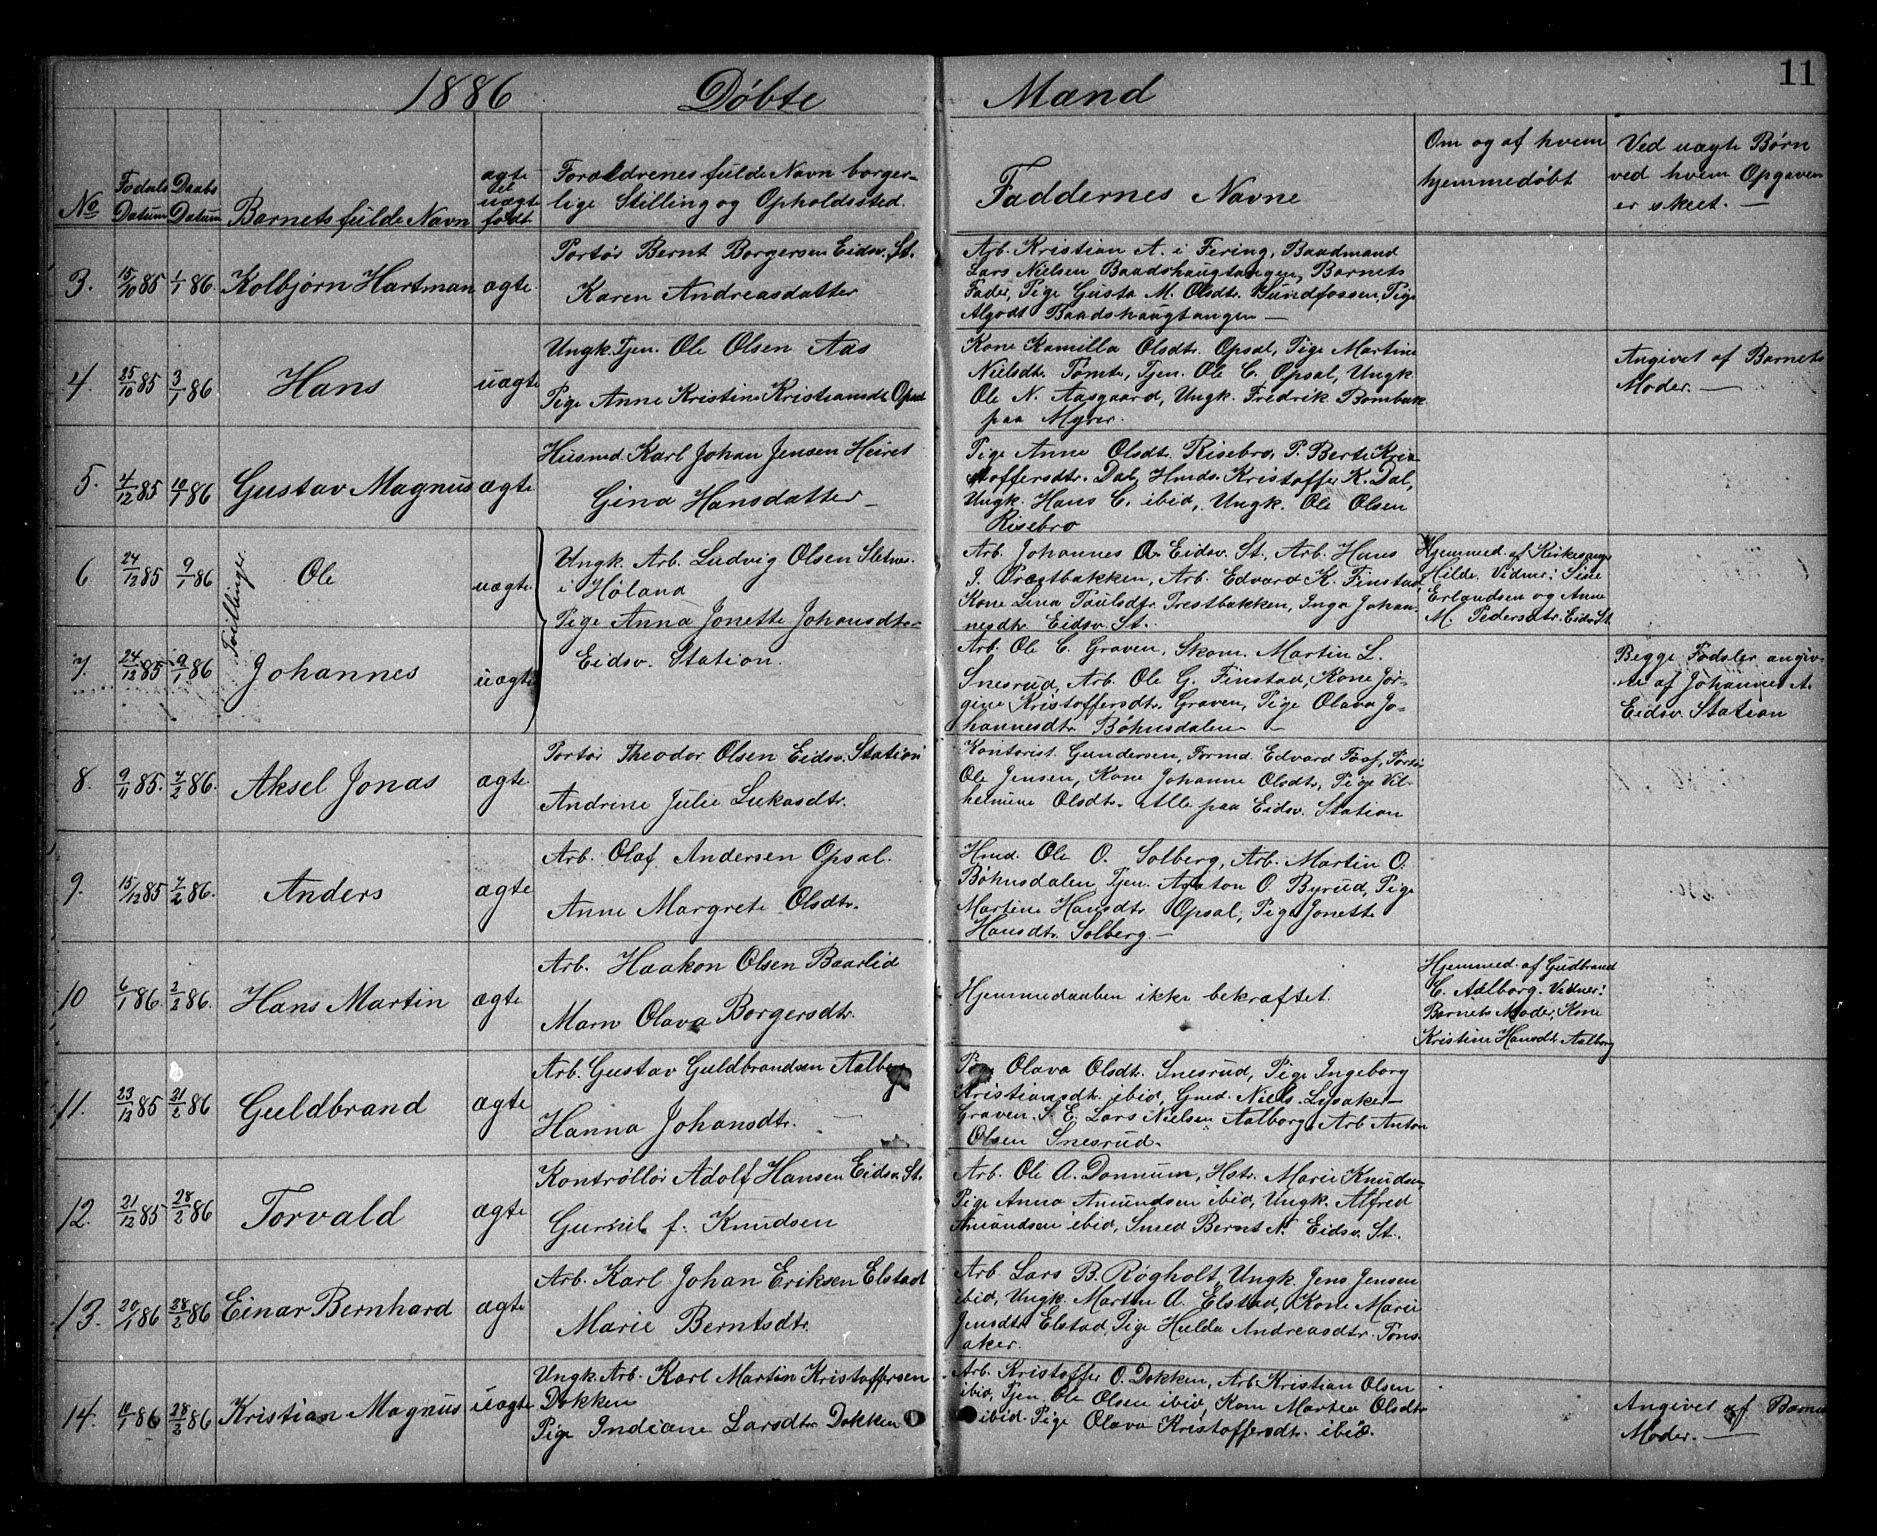 1886 Døbte Mænd 11
No
Fødsels Datum
Daabs Datum
Barnets fulde Navn
ægte el uægte født
Forældrenes fulde Navn borger-
lige Stilling og Opholdssted.
Faddernes Navne
Om og af hvem
hjemmedøbt
Ved uægte Børn
ved hvem Opgaven
er skeet. —
3. 15/10 85 1/1 86. Kolbjørn Hartman ægte.
Portør Bernt Borgersen Eidsv. St.
Karen Andreasdatter
Arb. Kristian A. i Fering, Baadmand
Lars Nielsen Baadshaugtangen, Barnets
Fader, Pige Gusta M. Olsdtr. Sundfossen, Pige
Algodt Baadshaugtangen —
4. 25/10 85 3/1 86 Hans uægte
Ungk. Tjen. Ole Olsen Aas
Pige Anne Kristine Kristiansdt. Opsal
Kone Kamilla Olsdtr. Opsal, Pige Martine
Nielsdt. Tømte, Tjen. Ole C. Opsal, Ungk.
Ole N. Aasgaard, Ungk. Fredrik
paa Myrer.
Angivet af Barnets
Moder. —
5. 4/12 85 10/1 86 Gustav Magnus ægte
Husmd. Karl Johan Jensen Heiret
Gina Hansdatter —
Pige Anne Olsdt. Risebro, P. Berte Kri-
stoffersdtr. Dal, Hmds. Kristoffer K. Dal,
Ungk. Hans C. ibid, Ungk. Ole Olsen
Risebro
Tvillinger
6 24/12 85 9/1 86 Ole uægte
Ungk. Arb. Ludvig Olsen
i Høland
Pige Anna Jonette Johansdtr.
Eidsv. Station.
Arb. Johannes A. Eidsv. St., Arb. Hans
J. Præstbakken, Arb. Edvard K. Finstad,
Kone Lina Paulsdtr. Prestbakken, Inga Johan-
nesdtr. Eidsv. St.
Hjemmed. af Kirkesanger
Hilde. Vidner: Sine
Erlandsen og Anne
M. Pedersdtr. Eidsv. St.
7. 24/12 85 9/1 86 Johannes uægte
Arb. Ole C. Graven, Skom. Martin L.
Snesrud, Arb. Ole G. Finstad, Kone Jør-
gine Kristoffersdtr. Graven, Pige Olava Jo-
hannesdtr. Bøhnsdalen —
Begge Fødsler angiv-
ne af Johannes A.
Eidsv. Station
8. 9/11 85. 7/2 86. Aksel Jonas ægte.
Portør Theodor Olsen Eidsv. Station
Andrine Julie Lukasdtr.
Kontorist Gundersen, Formd. Edvard Foss, Portør
Ole Jensen, Kone Johanne Olsdtr, Pige Vil-
helmine Olsdtr. Alle paa Eidsv. Station
9. 15/12 85 7/2 86. Anders ægte
Arb. Olaf Andersen Opsal.
Anne Margrete Olsdtr.
Hmd. Ole O. Solberg, Arb. Martin O.
Bøhnsdalen, Tjen. Agaton O. Byrud, Pige
Martine Hansdtr. Opsal, Pige Jonette
Hansdtr. Solberg. —
10 6/1 86. 2/2 86. Hans Martin ægte
Arb. Haakon Olsen Baarlid
Marn Olava Borgersdtr.
Hjemmedaaben ikke bekræftet.
Hjemmed. af Gudbrand
C. Aalborg. Vidner:
Barnets Moder, Kone
Kristine Hansdt. Aalborg
11. 23/12 85 21/2 86 Guldbrand ægte
Arb. Gustav Guldbrandsen Aalborg
Hanna Johansdtr.
Olava Olsdt. Snesrud, Pige Ingeborg
Kristiansdtr. ibid, Gmd. Niels Lysaker-
Graven. S. E. Lars Nielsen Aalborg, Arb Anton
Olsen Snesrud.
12. 21/12 85 28/2 86 Torvald ægte
Kontrollør Adolf Hansen Eidsv. St.
f. Knudsen
Arb. Ole A. Donnum, Hstr. Marie Knudsen,
Pige Anna Amundsen ibid, Ungk. Alfred
Amundsen ibid, Smed Bernt N. Eidsv. St.
13. 20/1 86 28/2 86 Einar Bernhard ægte
Arb. Karl Johan Eriksen Elstad
Marie Berntsdtr.
Arb. Lars B. Røgholt, Ungk. Jens Jensen
ibid, Ungk. Martin A. Elstad, Kone Marie
Jensdtr. Elstad, Pige Hulda Andreasdtr. Tøns-
aker.
14. 10/1 86 28/2 86 Kristian Magnus uægte
Ungk. Arb. Karl Martin Kristoffersen
Dokken
Pige Indiane Larsdtr. Dokken
Arb. Kristoffer O. Dokken, Arb. Kristian Olsen
ibid, Tjen Ole Olsen ibid, Kone Martea Olsdtr
ibid. Pige Olava Kristoffersdtr. ibid.
Angivet af Barnets
Moder. —